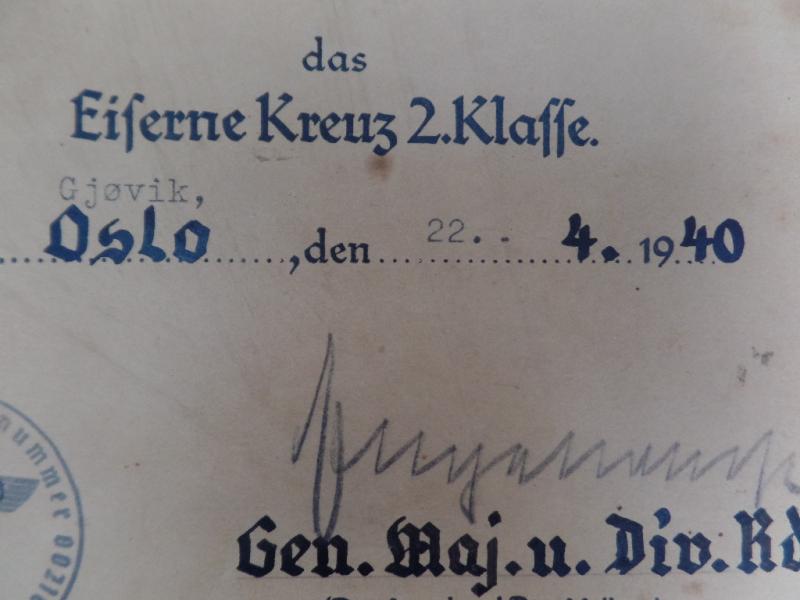 das
Eiserne Kreuz 2.Klasse.
Gjøvik,
Oslo, den 22. 4. 1940
Gen. Maj. u. Div.
nummer 0021